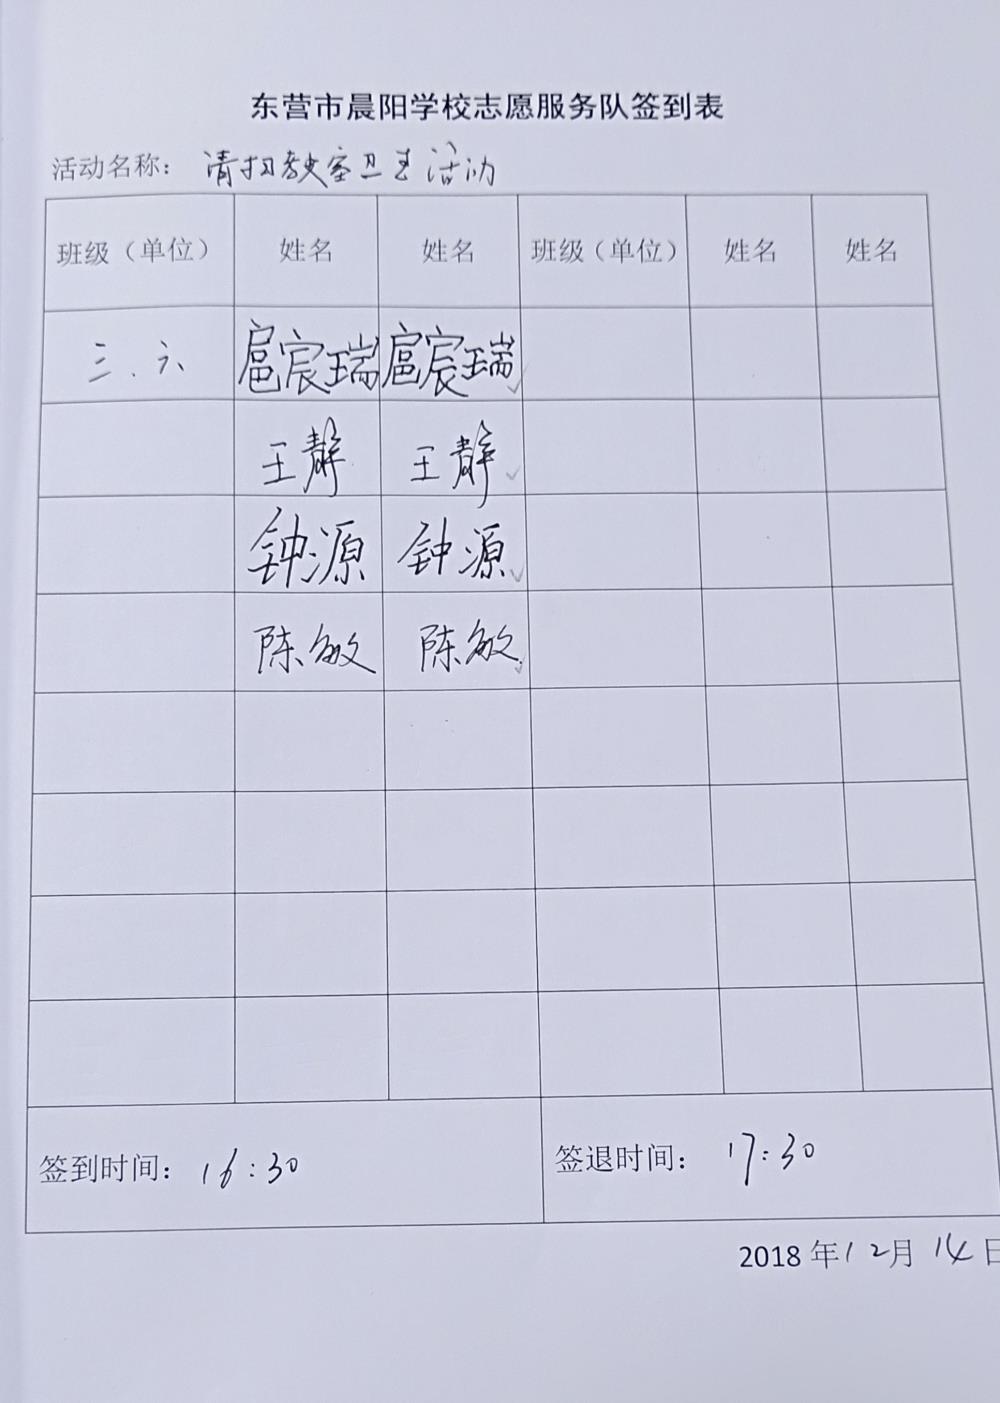 东营市晨阳学校志愿服务队签到表
活动名称：清扫教室卫生活动
班级（单位） 姓名 姓名 班级（单位） 姓名 姓名
三.六 扈宸瑞 扈宸瑞
王静 王静
钟源 钟源
陈敏 陈敏
签到时间：16:30 签退时间：17:30
2018年12月14日